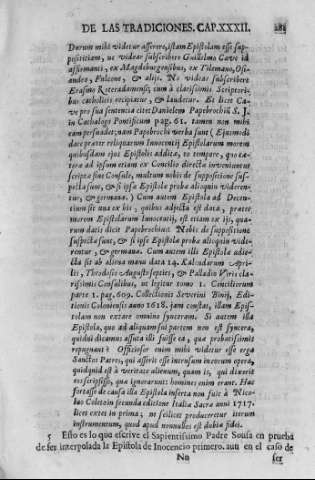 DE LAS TRADICIONES. CAP. XXXII. 281
Darum mihi videor asserere, istam Epistolam esse sup-
posititiam, ut videar subscribere Guilielmo Cave id
affirmanti, ex Magdeburgensibus, ex Tilemano, Osi-
andro, Fulcone, & alijs. Ne videar subscribere
Erasmo Roterodamensi, cum à clarissimis Scriptori-
bus catholicis recipiatur, & laudetur. Et licet Ca-
ve pro sua sententia citet Danielem Papebrochiũ S. J.
in Cathalogo Pontificum pag. 61. tamen non mihi
persuadet; nam Papebrochi verba sunt ( Ejusmodi
dare præter reliquarum Innocentij Epistolarum morem
quibusdam ejus Epistolis additæ, to tempore, quo cæ-
tera ad ipsum etiam ex Concilio directa invenimus
scripta sine Consule, multum nobis de suppositione sus-
pecta sunt, & si ipsa Epistola proba alioquin videren-
tur, & germana. ) Cum autem Epistola ad Decen-
tium sit una ex his, quibus adjecta est data, præter
morem Epistolarum Innocentij, est etiam ex ijs, qua-
rum datis dicit Papebrochius. Nobis de suppositione
suspecta sunt, & si ipsæ Epistola proba alioquin vide-
rentur, & germana. Cum autem illi Epistola adje-
cta sit ab aliena manu data 14. Kalendarum Apri-
lis, Theodosio Augusto septies, & Palladio Viris cla-
rissimis Consulibus, ut legitur tomo 1. Conciliorum
parte 1. pag. 609. Collectionis Severini Binij, Edi-
tionis Coloniensis anno 1618. jam constat, illam Epis-
tolam non extare omnino synceram. Si autem illa
Epistola, quo ad aliquam sui partem non est syncera,
quidni dicamus assuta illi fuisse ea, qua probatissimis
repugnant? Officiosor enim mihi videtur esse erga
Sanctos Patres, qui asserit esse intrusum incerto opera,
quidquid est à veritate alienum, quam is, qui dixerit
eos scripsisse, qua ignorarunt homines enim erant. Hac
fortasse de causa illa Epistola inserta non fuit à Nico-
lao Coletoin secunda editione Italia Sacra anno 1717.
licet extet in prima; ni scilicet produceretur iterum
instrumentum, quod apud nonnullos est dubia fidei.
5 Esto es lo que escrive el Sapientissimo Padre Sousa en prueba
de ser interpolada la Epistola de Inocencio primero. aun en el caso de
Nn ser